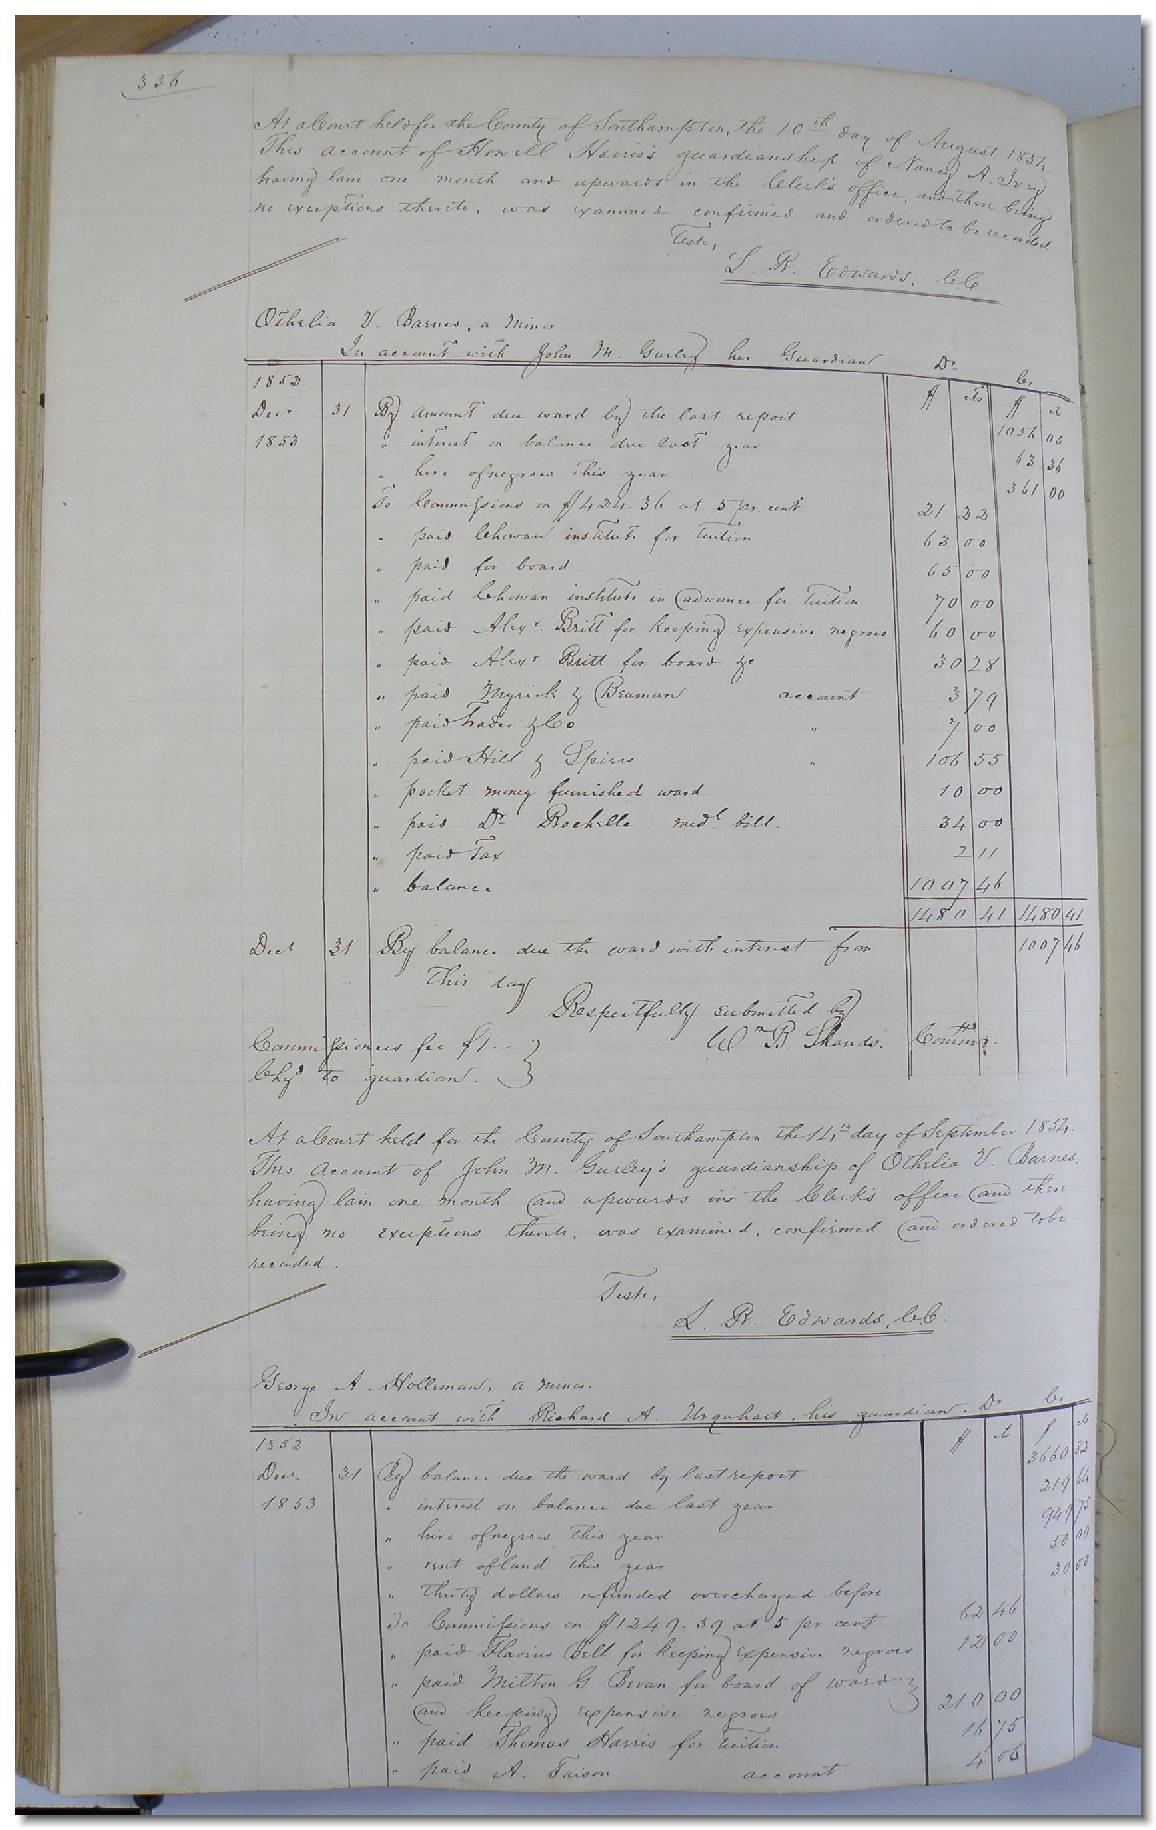 336
At a Court held for the County of Southampton, the 10th day of August 1854,
This account of Howell Harris's guardianship of Nancy A. Ivey
having lain one month and upwards in the Clerk's office, and there being
no exceptions thereto, was examined confirmed and ordered to be recorded
Teste,
L. R. Edwards, C.C.
Othelia V. Barnes, a Minor
In account with John M. Gurley her Guardian Dr Cr
1852 $ cts $ ct
Decr 31 By amount due ward by the last report 1056 05
1853 " interest on balance due last year 63 36
" hire of negroes this year 361 00
To Commissions on $424.36 at 5 pr. cent 21 22
" paid Chowan institute for tuition 63 00
" paid for board 65 00
" paid Chowan institute in advance for tuition 70 00
" paid Alexr. Britt for keeping expensive negroes 60 00
" paid Alexr Britt for board &c 30 28
" paid Myrick & Beaman account 3 79
" paid Trader & Co " 7 00
" paid Hill & Spiers " 106 55
" pocket money furnished ward 10 00
" paid Dr Rochelle medl bill. 34 00
" paid Tax 2 11
" balance 1007 46
1480 41 1480 41
Decr 31 By balance due the ward with interest from 1007 46
this day
Respectfully submitted by
Commissioners fee $1.-- Wm B. Shands. Commr.
Chgd to guardian.
At a Court held for the County of Southampton the 14th day of September 1854.
This Account of John M. Gurley's guardianship of Othelia V. Barnes,
having lain one month and upwards in the Clerk's office and there
being no exceptions thereto, was examined, confirmed and ordered to be
recorded.
Teste,
L. R. Edwards, C.C.
George A. Holleman, a minor.
In account with Richard A. Urquhart, his guardian. Dr Cr
1852 $ ct $ ct
Decr. 31 By balance due the ward by last report 3660 82
1853 " interest on balance due last year 219 64
" hire of negroes this year 949 75
" rent of land this year 50 00
" thirty dollars refunded overcharged before 30 00
To Commissions on $1249.39 at 5 pr cent 62 46
" paid Flavius Bell for keeping expensive negroes 12 00
" paid Milton G Bevan for board of ward
and keeping expensive negroes 210 00
" paid Thomas Harris for tuition 16 75
" paid A. Faison account 4 06